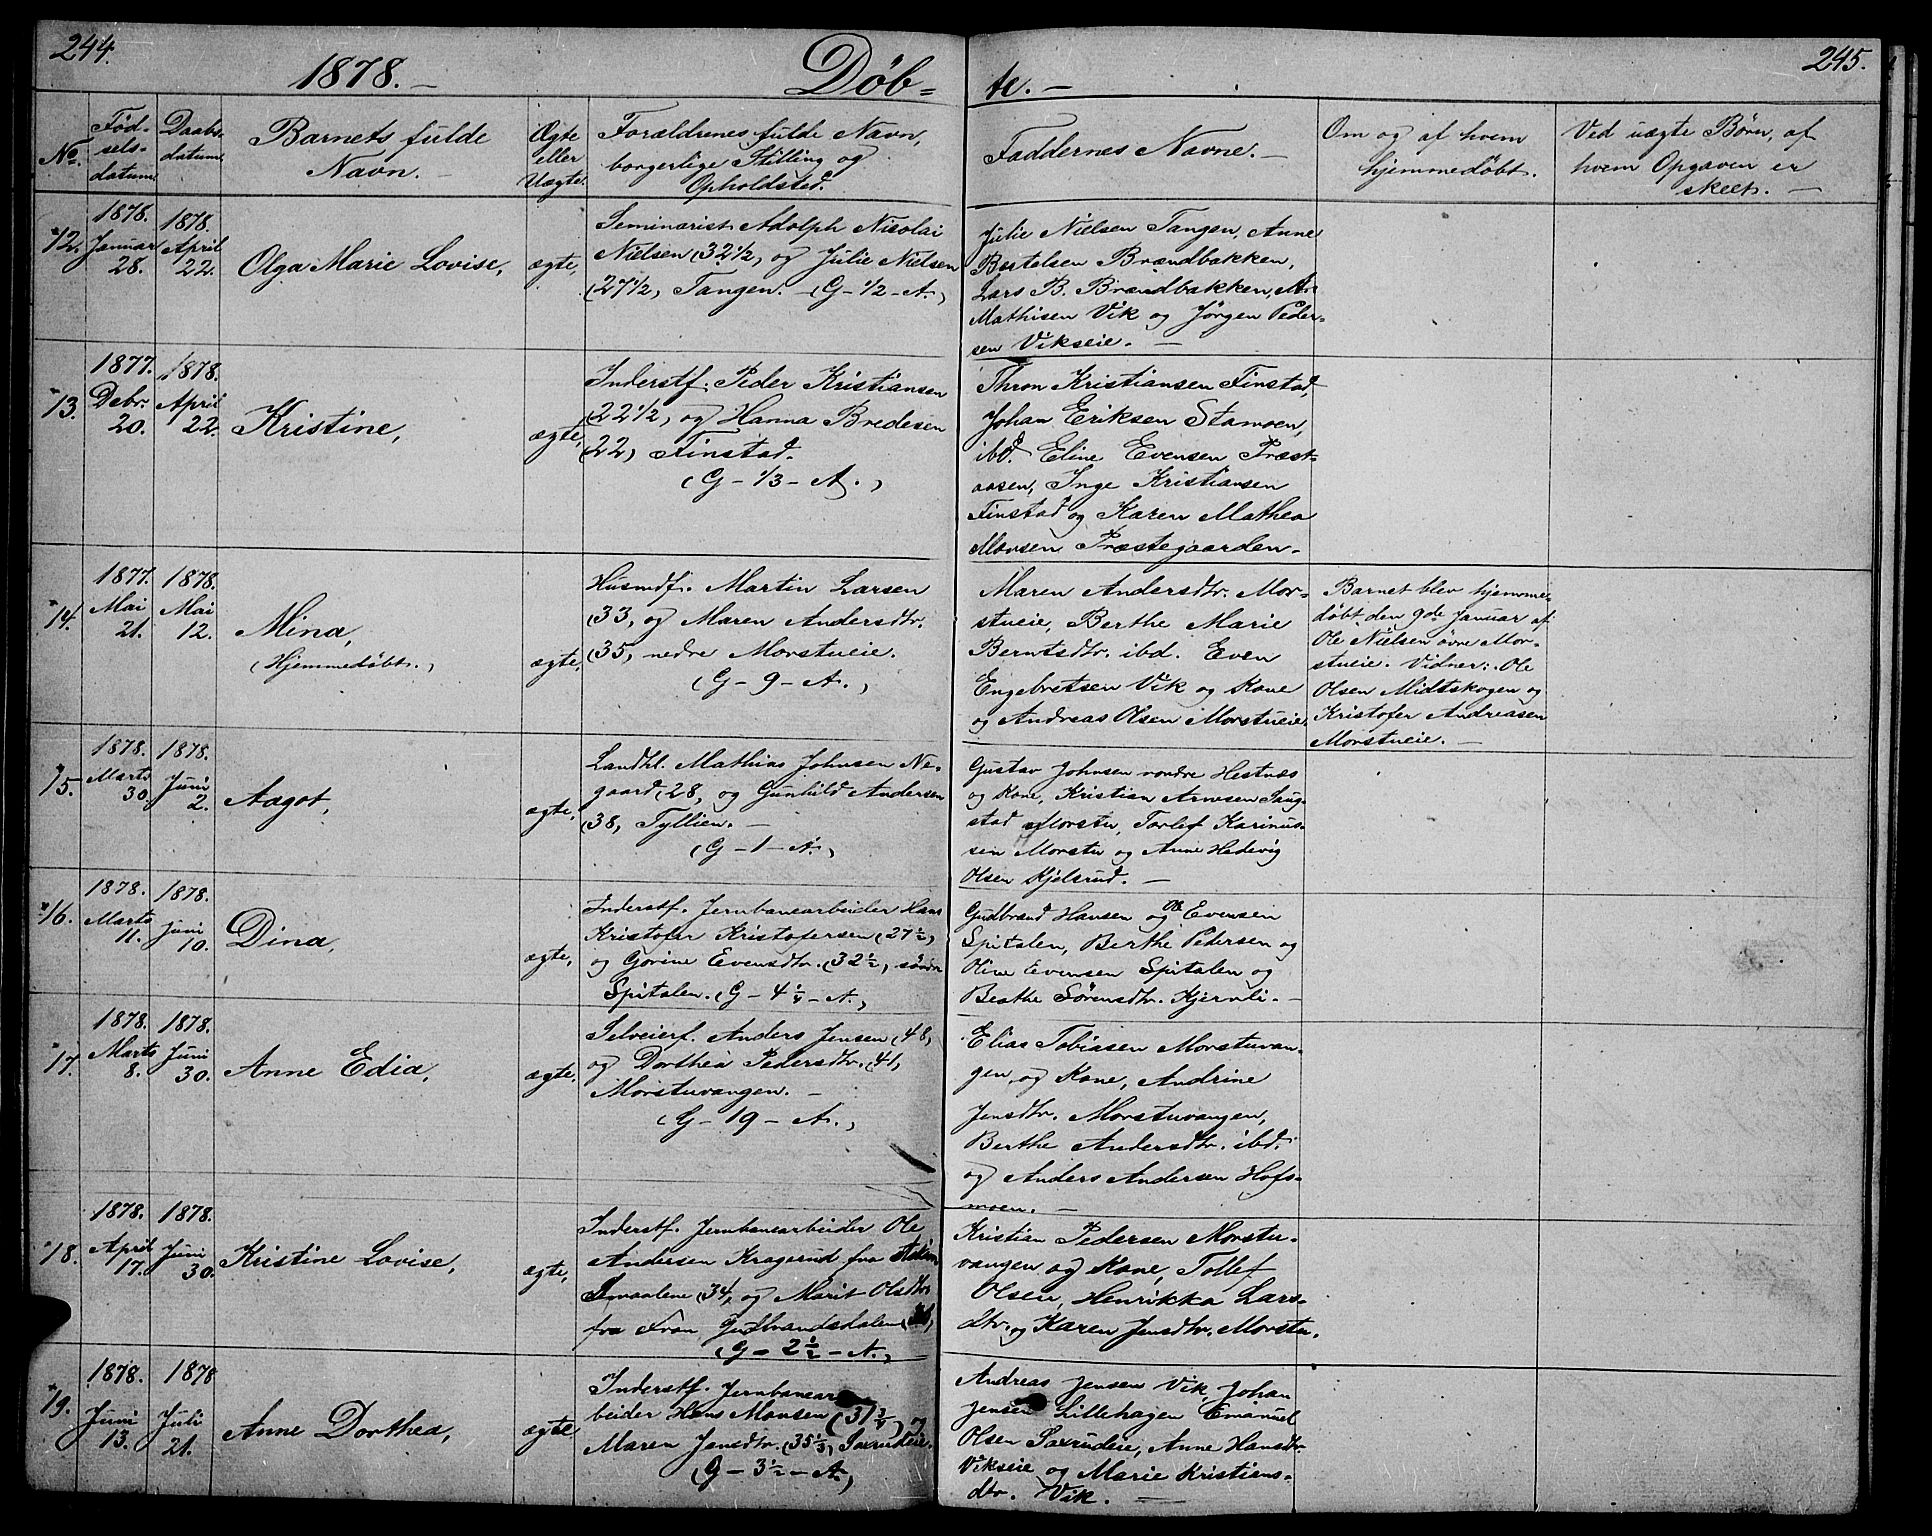 244.
1878. —
Døb=
te. —
245.
No.
Fød-
sels-
datum.
Daabs-
datum.
Barnets fulde
Navn. —
Ægte
eller
Uægte.
Forældrenes fulde Navn,
borgerlige Stilling og
Opholdsted.
Faddernes Navne. —
Om og af hvem
hjemmedøbt.
Ved uægte Børn, af
hvem Opgaven er
skeet. —
12.
1878.
Januar
28.
1878.
April
22.
Olga Marie Lovise,
ægte,
Seminarist Adolph Nicolai
Nielsen (32 1/2, og Julie Nielsen
(27 1/2, Tangen. — (G - 1/2 - A.,
Julie Nielsen Tangen, Anne
Bertelsen Brændbakken,
Lars B. Brændbakken,
Mathisen Vik og Jørgen Peder-
sen Vikseie. —
13.
1877.
Debr.
20.
1878.
April
22.
Kristine,
ægte,
Inderstf. Peder Kristiansen
(22 1/2, og Hanna Bredesen
(22, Finstad.
(G - 1/3 - A.,
Thron Kristiansen Finstad,
Johan Eriksen Stamoen,
ibd. Eline Evensen Præst-
aasen, Inge Kristiansen
Finstad og Karen Mathea
Monsen Præstegaarden.
14.
1877.
Mai
21.
1878.
Mai
12.
Mina,
(Hjemmedøbt.,
ægte,
Husmdf. Martin Larsen
(33, og Maren Andersdtr.
(35, nedre Morstueie.
(G - 9 - A.,
Maren Andersdtr. Mor-
stueie, Berthe Marie
Berntsdtr. ibd. Even
Engebretsen Vik og Kone
og Andreas Olsen Morstueie.
Barnet blev hjemme-
døbt den 9de Januar af
Ole Nielsen øvre Mor-
stueie. Vidner: Ole
Olsen Midtskogen og
Kristofer Andreasen
Morstueie. —
15.
1878.
Marts
30.
1878.
Juni
2.
Aagot,
ægte,
Landhl. Mathias Johnsen Ne-
gaard (28, og Gunhild Andersen
(38, Tyllien. —
(G - 1 - A.,
Gustav Johnsen nordre Hestnæs
og Kone, Kristian Arnesen Saug-
stad Morstu, Torlef Karinus-
sen Morstu og Anne Hedevig
Olsen Kjelsrud. —
16.
1878.
Marts
11.
1878.
Juni
10.
Dina,
ægte,
Inderstf. Jernbanearbeider Hans
Kristofer Kristofersen (27 1/2,
og Gorine Evensdtr. (32 1/2, søndre
Spitalen. (G - 4 1/4 - A.,
Gudbrand Hansen og Ole Evensen
Spitalen, Berthe Pedersen og
Oline Evensen Spitalen og
Beathe Sørensdtr. Kjernli. —
17.
1878.
Marts
8.
1878.
Juni
30.
Anne Edia,
ægte,
Selveierf. Anders Jensen (48,
og Dorthea Pedersdtr. (41,
Morstuvangen. —
(G - 19 - A.,
Elias Tobiasen Morstuvan-
gen, og Kone, Andrine
Jensdtr. Morstuvangen,
Berthe Andersdtr. ibd.
og Anders Andersen Hofs-
moen. —
18.
1878.
April
17.
1878.
Juni
30.
Kristine Lovise,
ægte,
Inderstf. Jernbanearbeider Ole
Andersen Kragerud fra
Smaalene (34, og Marit Olsdtr.
fra Fron Gudbrandsdalen
(G - 2 1/2 - A.,
Kristian Pedersen Morstu-
vangen og Kone, Tollef
Olsen, Henrikka Lars-
dtr. og Karen Jensdtr. Morstu.
19.
1878.
Juni
13.
1878
Juli
21.
Anne Dorthea,
ægte
Inderstf. Jernbanear-
beider Hans Monsen (31 3/4, og
Maren Jensdtr. (35 1/3, Saxrudeie.
(G - 3 1/2 - A.,
Andreas Jensen Vik, Johan
Jensen Lillehagen Emanuel
Olsen Saxrudeie, Anne Hansdtr.
Vikseie og Marie Kristians-
dtr. Vik. —